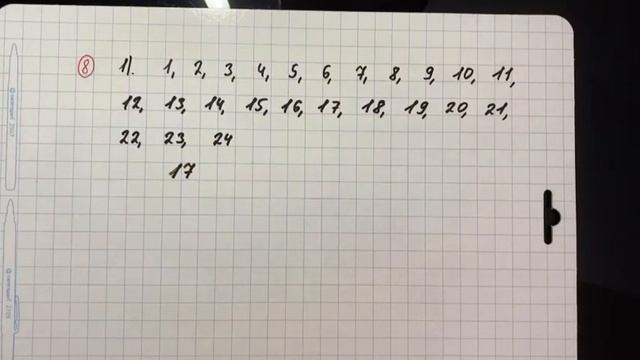 8 1). 1, 2, 3, 4, 5, 6, 7, 8, 9, 10, 11,
12, 13, 14, 15, 16, 17, 18, 19, 20, 21,
22, 23, 24
17